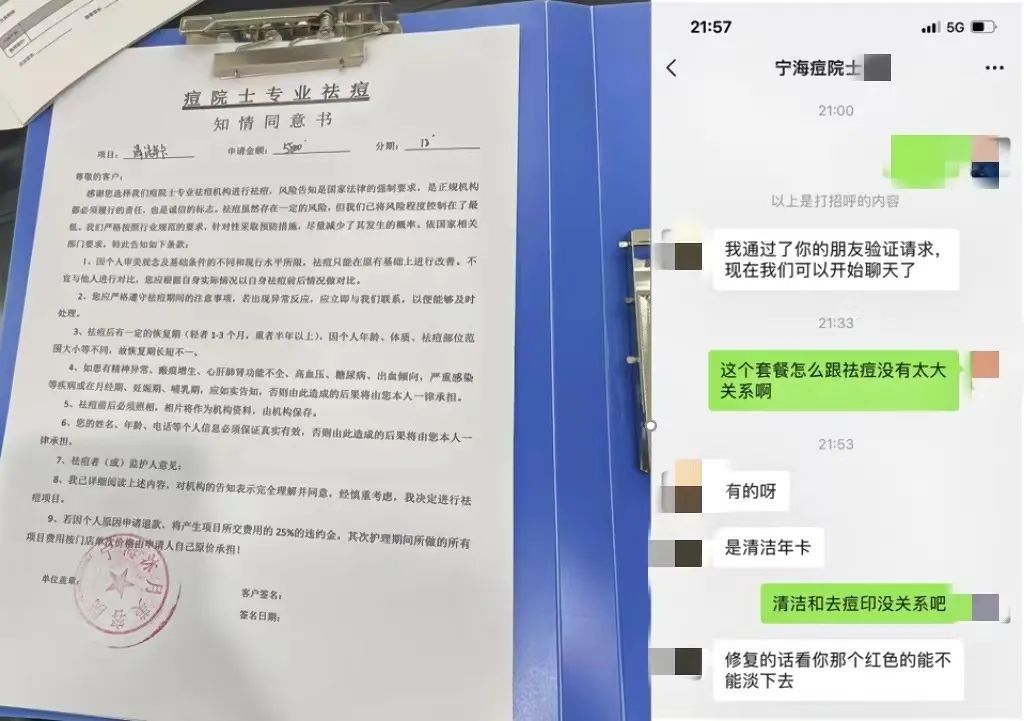 痘院士专业祛痘
知情同意书
项目：清洁卡 申请金额：5800 分期：12
尊敬的客户：
感谢您选择我们痘院士专业祛痘机构进行祛痘，风险告知是国家法律的强制要求，是正规机构
都必须履行的责任，也是诚信的标志。祛痘虽然存在一定的风险，但我们已将风险程度控制在了最
低。我们严格按照行业规范的要求，针对性采取预防措施，尽量减少了其发生的概率。依国家相关
部门要求，特此告知如下条款：
1、因个人审美观念及基础条件的不同和现行水平所限，祛痘只能在原有基础上进行改善。不
宜与他人进行对比，您应根据自身实际情况以自身祛痘前后情况做对比。
2、您应严格遵守祛痘期间的注意事项，若出现异常反应，应立即与我们联系，以便能够及时
处理。
3、祛痘后有一定的恢复期（轻者1-3个月，重者半年以上），因个人年龄、体质、祛痘部位范
围大小等不同，故恢复期长短不一、
4、如患有精神异常、瘢痕增生、心肝肺肾功能不全、高血压、糖尿病、出血倾向，严重感染
等疾病或在月经期、妊娠期、哺乳期，应如实告知，否则由此造成的后果将由您本人一律承担。
5、祛痘前后必须照相，相片将作为机构资料，由机构保存。
6、您的姓名、年龄、电话等个人信息必须保证真实有效，否则由此造成的后果将由您本人一
律承担。
7、祛痘者（或）监护人意见：
8、我已详细阅读上述内容，对机构的告知表示完全理解并同意，经慎重考虑，我决定进行祛
痘项目。
9、若因个人原因申请退款、将产生项目所交费用的25%的违约金，其次护理期间所做的所有
项目费用按门店单次价格由申请人自己原价承担！
单位盖章：
客户签名：
签名日期：
21:57
5G
宁海痘院士
21:00
以上是打招呼的内容
我通过了你的朋友验证请求，
现在我们可以开始聊天了
21:33
这个套餐怎么跟祛痘没有太大
关系啊
21:53
有的呀
是清洁年卡
清洁和去痘印没关系吧
修复的话看你那个红色的能不
能淡下去